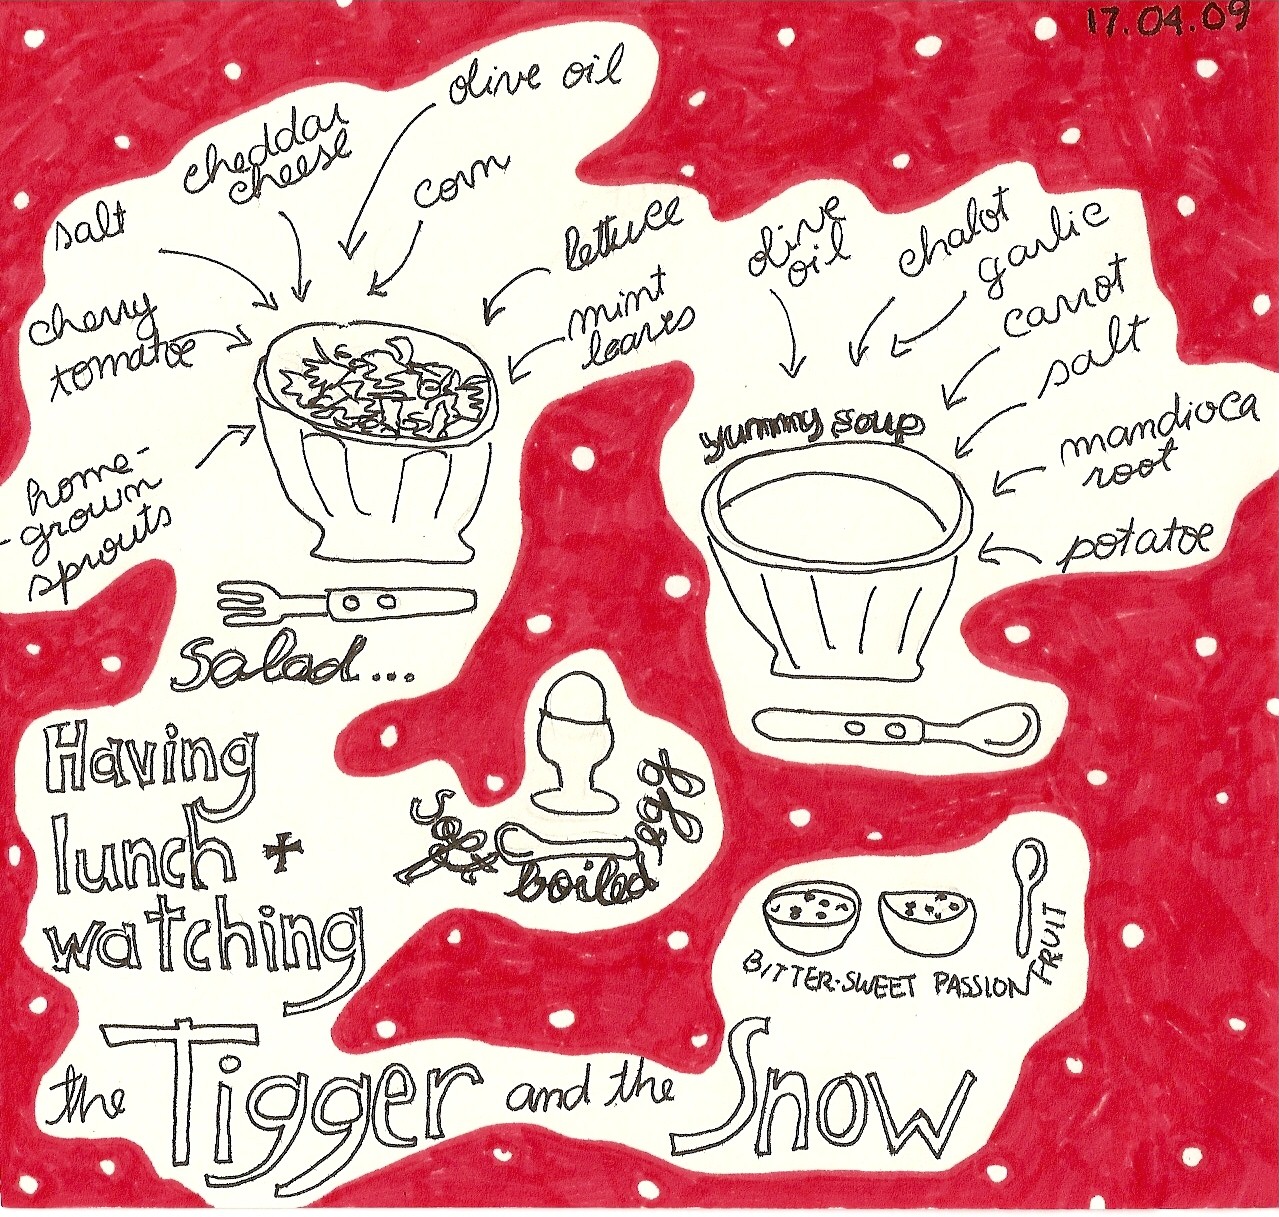 17.04.09
olive oil
cheddar
cheese
corn
salt
lettuce
cherry
tomatoe
mint
leaves
home-
-grown
sprouts
Salad...
olive
oil
chalot
garlic
carrot
salt
mandioca
root
potatoe
yummy soup
soft
boiled
egg
BITTER-SWEET PASSION FRUIT
Having
lunch +
watching
the Tigger and the Snow